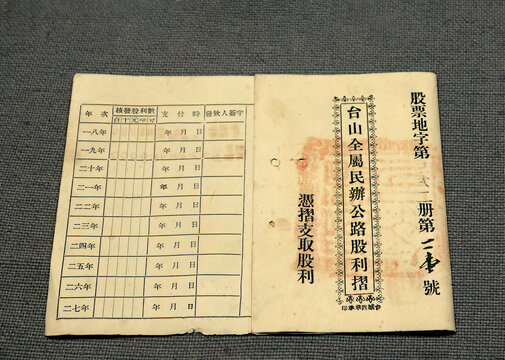 股票地字第 册第 號
台山全屬民辦公路股利摺
憑摺支取股利
年次 核發股利數 支付時 發款人簽字
百十元角分
一八年 年月日
一九年 年月日
二十年 年月日
二一年 年月日
二二年 年月日
二三年 年月日
二四年 年月日
二五年 年月日
二六年 年月日
二七年 年月日